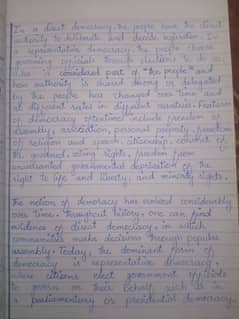 In a direct democracy, the people have the direct
authority to deliberate and decide legislation. In
a representative democracy, the people choose
governing officials through elections to do so.
who is considered part of "the people" and
how authority is shared among or delegated
by the people has changed over time and
at different rates in different countries. Features
of democracy oftentimes include freedom of
assembly, association, personal property, freedom
of religion and speech, citizenship, consent of
the governed, voting rights, freedom from
unwarranted governmental deprivation of the
right to life and liberty, and minority rights.
The notion of democracy has evolved considerably
over time. Throughout history, one can find
evidence of direct democracy, in which
communities make decisions through popular
assembly. Today, the dominant form of
democracy is representative democracy,
where citizens elect government officials
to govern on their behalf such as in
a parliamentary or presidential democracy.